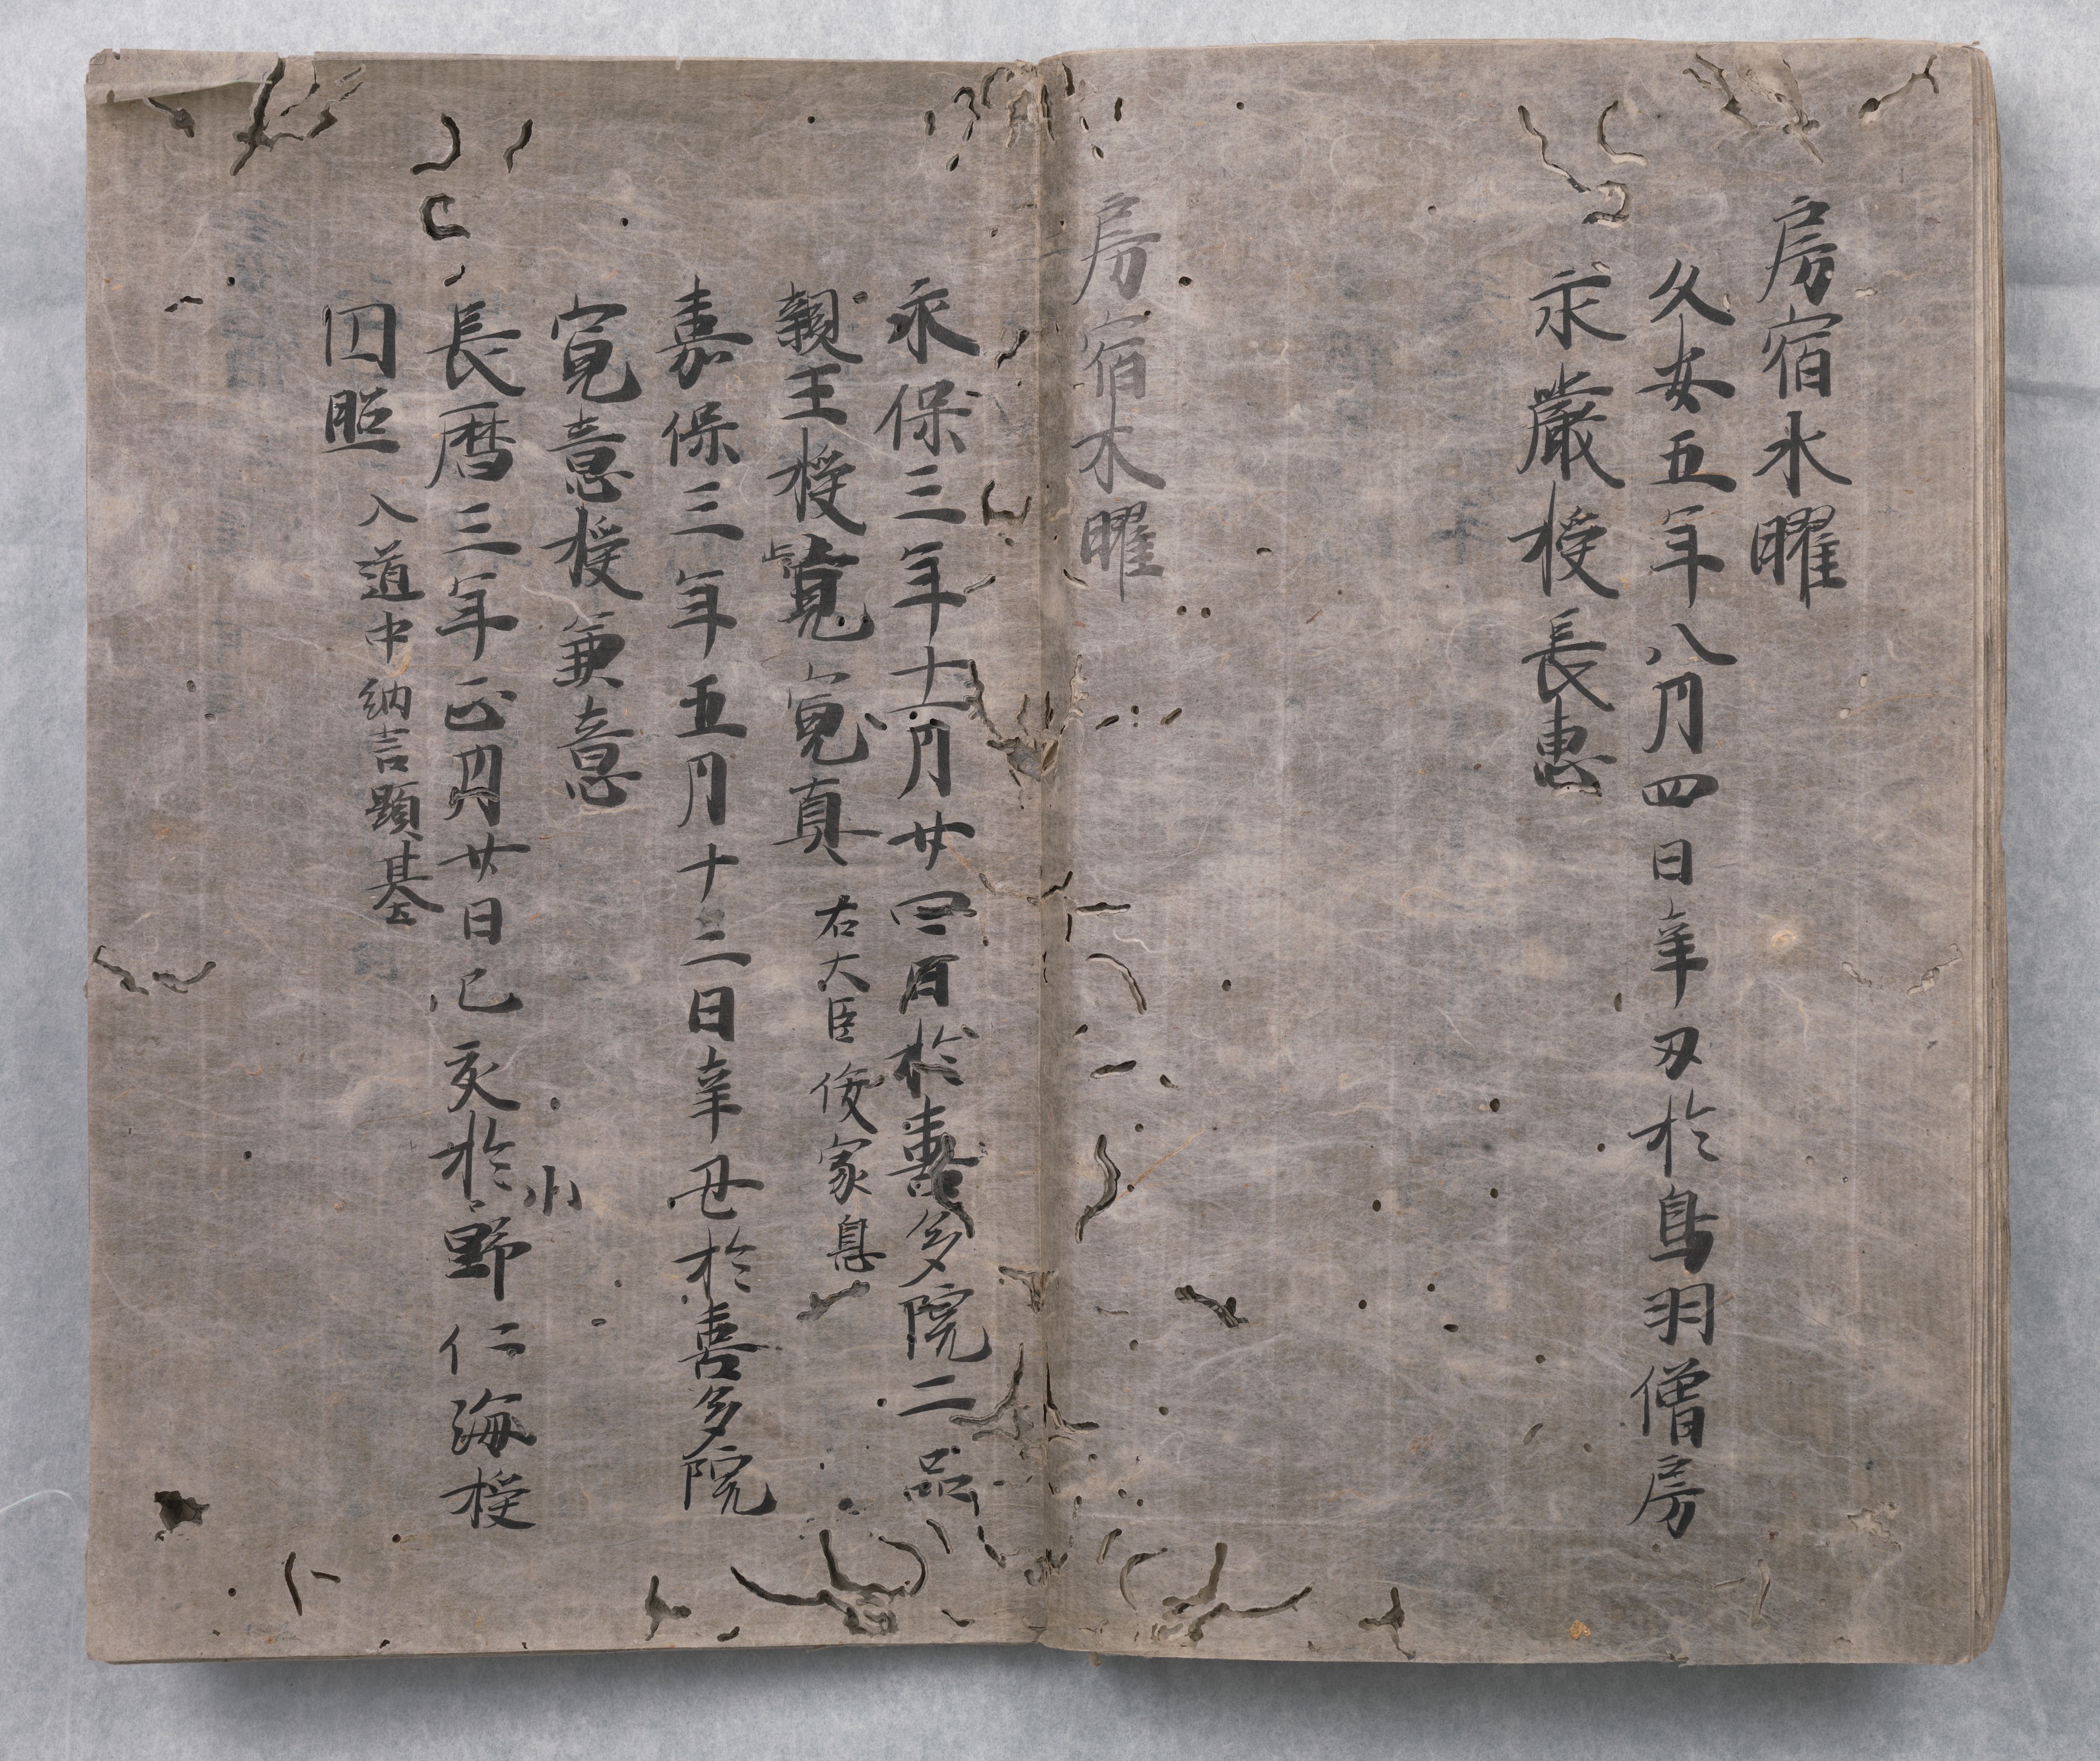 房宿水曜
久安五年八月四日辛丑於鳥羽僧房
永嚴授長恵
房宿木曜
永保三年十二月廿四日於喜多院二品
親王授寛寛真右大臣俊家息
嘉保三年五月十二日辛丑於喜多院
寛意授兼意
長暦三年正月廿日己亥於小野仁海授
円照入道中納言顕基